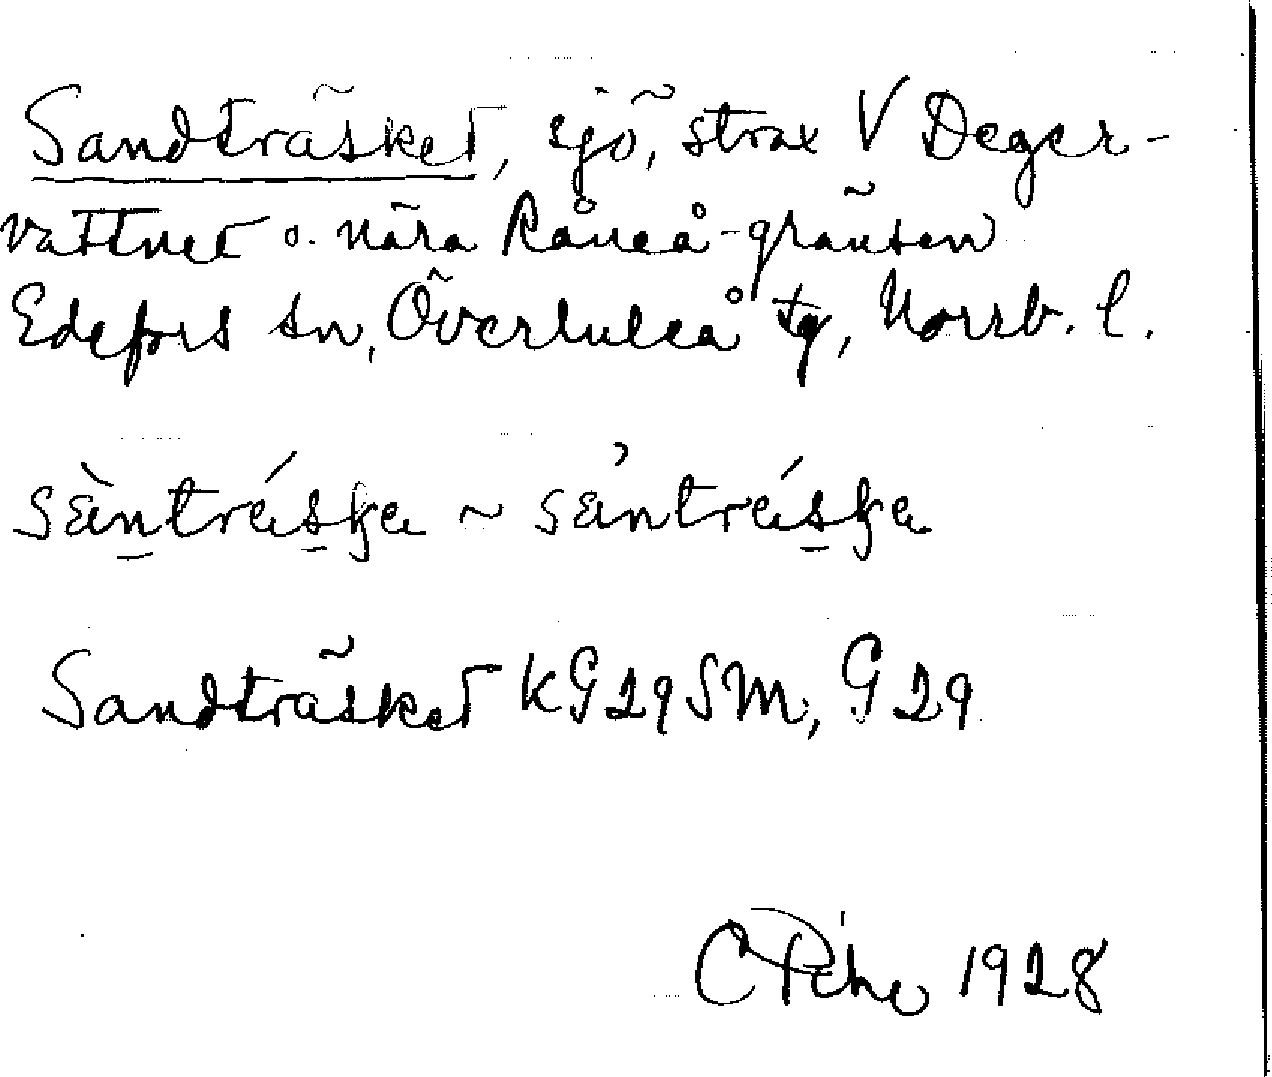 Sandträsket, sjö, strax V Deger-
vattnet o. nära Råneå-gränsen
Edefors sn, Överluleå tg, Norrb. l.
sàntréska ~ sántréska
Sandträsket KG29SM, G29
C Pihl 1928